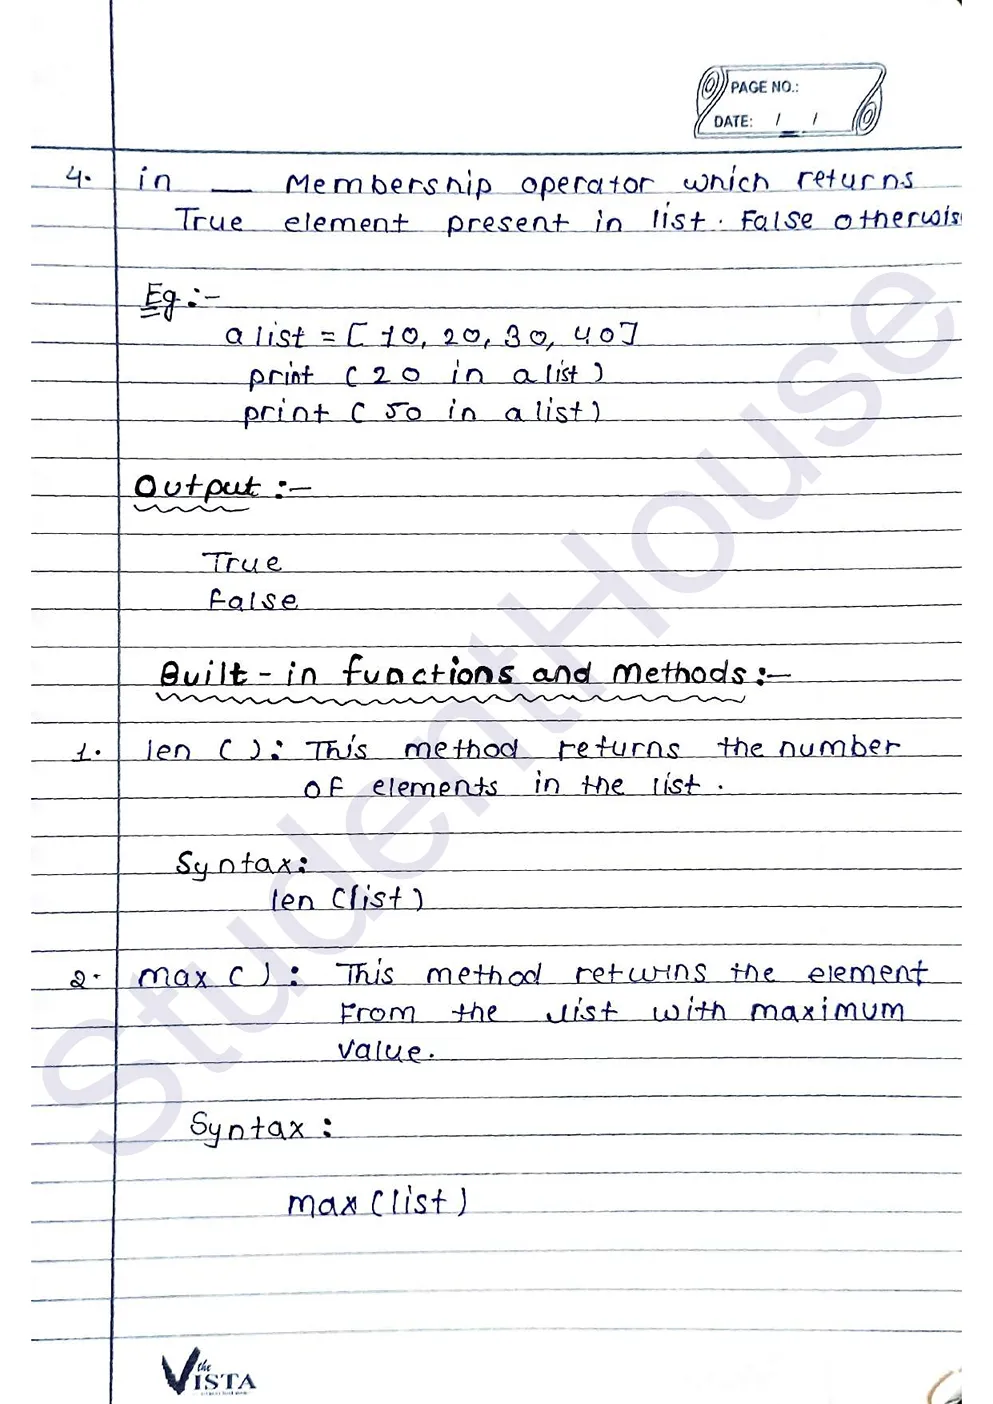 PAGE NO.:
DATE: / /
4. in — Membership operator which returns
True element present in list. False otherwis
Eg :-
alist = [10, 20, 30, 40]
print (20 in alist)
print (50 in alist)
Output :-
True
False
Built-in functions and Methods :-
1. len ( ) : This method returns the number
of elements in the list.
Syntax:
len (list)
2. max ( ) : This method returns the element
From the list with maximum
value.
Syntax :
max (list)
the
VISTA
StudentHouse